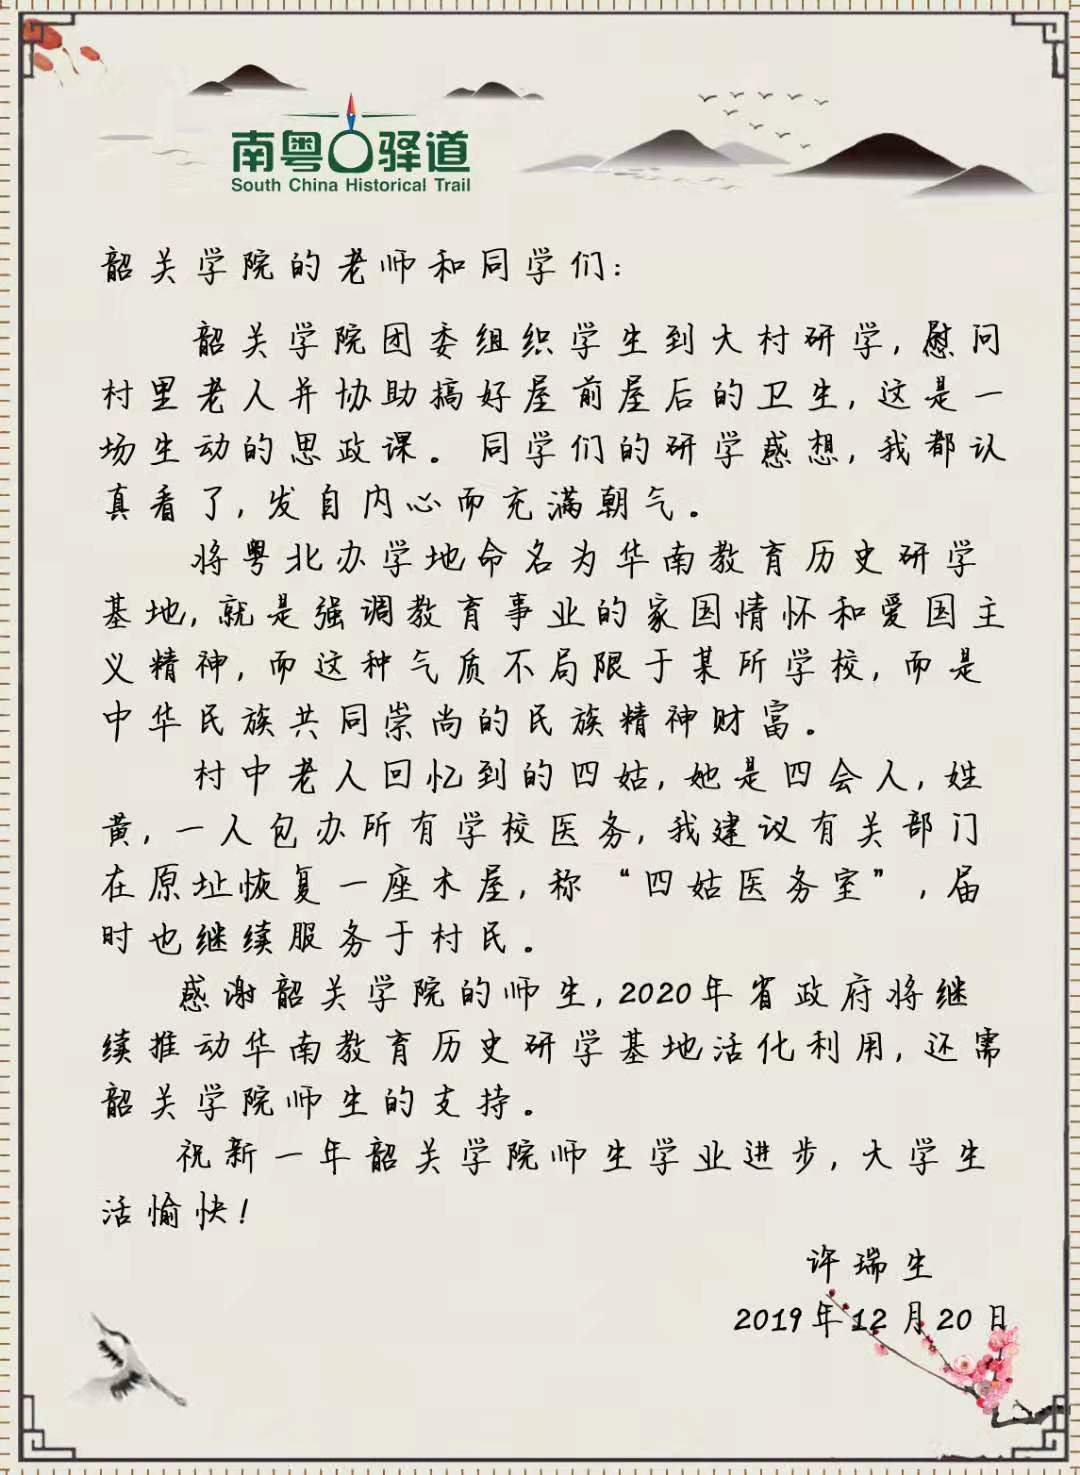 南粤古驿道
South China Historical Trail
韶关学院的老师和同学们：
韶关学院团委组织学生到大村研学，慰问
村里老人并协助搞好屋前屋后的卫生，这是一
场生动的思政课。同学们的研学感想，我都认
真看了，发自内心而充满朝气。
将粤北办学地命名为华南教育历史研学
基地，就是强调教育事业的家国情怀和爱国主
义精神，而这种气质不局限于某所学校，而是
中华民族共同崇尚的民族精神财富。
村中老人回忆到的四姑，她是四会人，姓
黄，一人包办所有学校医务，我建议有关部门
在原址恢复一座木屋，称“四姑医务室”，届
时也继续服务于村民。
感谢韶关学院的师生，2020年省政府将继
续推动华南教育历史研学基地活化利用，还需
韶关学院师生的支持。
祝新一年韶关学院师生学业进步，大学生
活愉快！
许瑞生
2019年12月20日